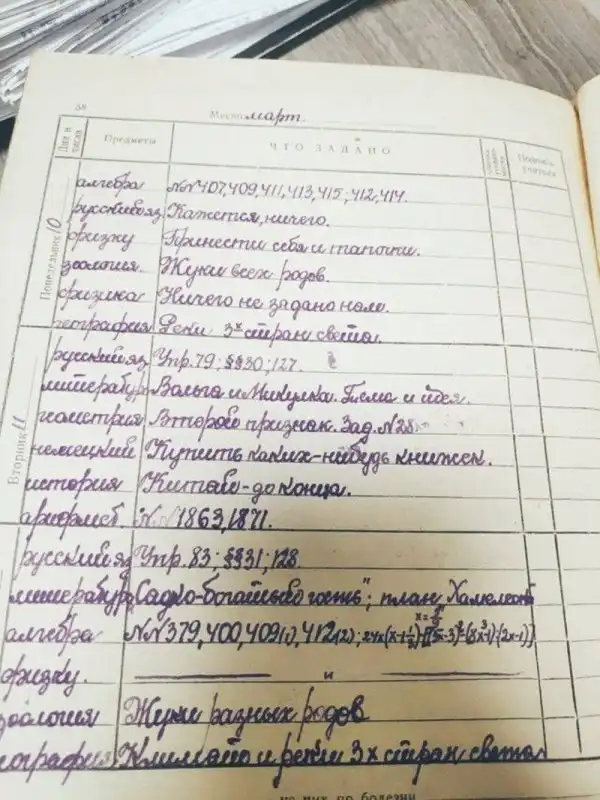 38
Месяц март.
Дни и числа Предметы ЧТО ЗАДАНО Подпись учителя
Понедельник 10
алгебра №№407,409,411,413,415; 412,414.
русский яз Кажется, ничего.
физку Принести себя и тапочки.
зоология. Жуки всех родов.
физика Ничего не задано нам.
география Реки 3х стран света.
Вторник 11
русский яз Упр. 79; §§30; 127.
литература Вольга и Микулка. Тема и идея.
геометрия Второй признак. Зад. №28
немецкий Купить каких-нибудь книжек.
история Китай - до конца.
арифмет. №№1863, 1871.
русский яз Упр. 83; §§31; 128.
литература "Садко-богатый гость"; план Хамелеона
алгебра №№379, 400, 409(1), 412(2);
физку. — и —
зоология Жуки разных родов
география Климат и реки 3х стран света